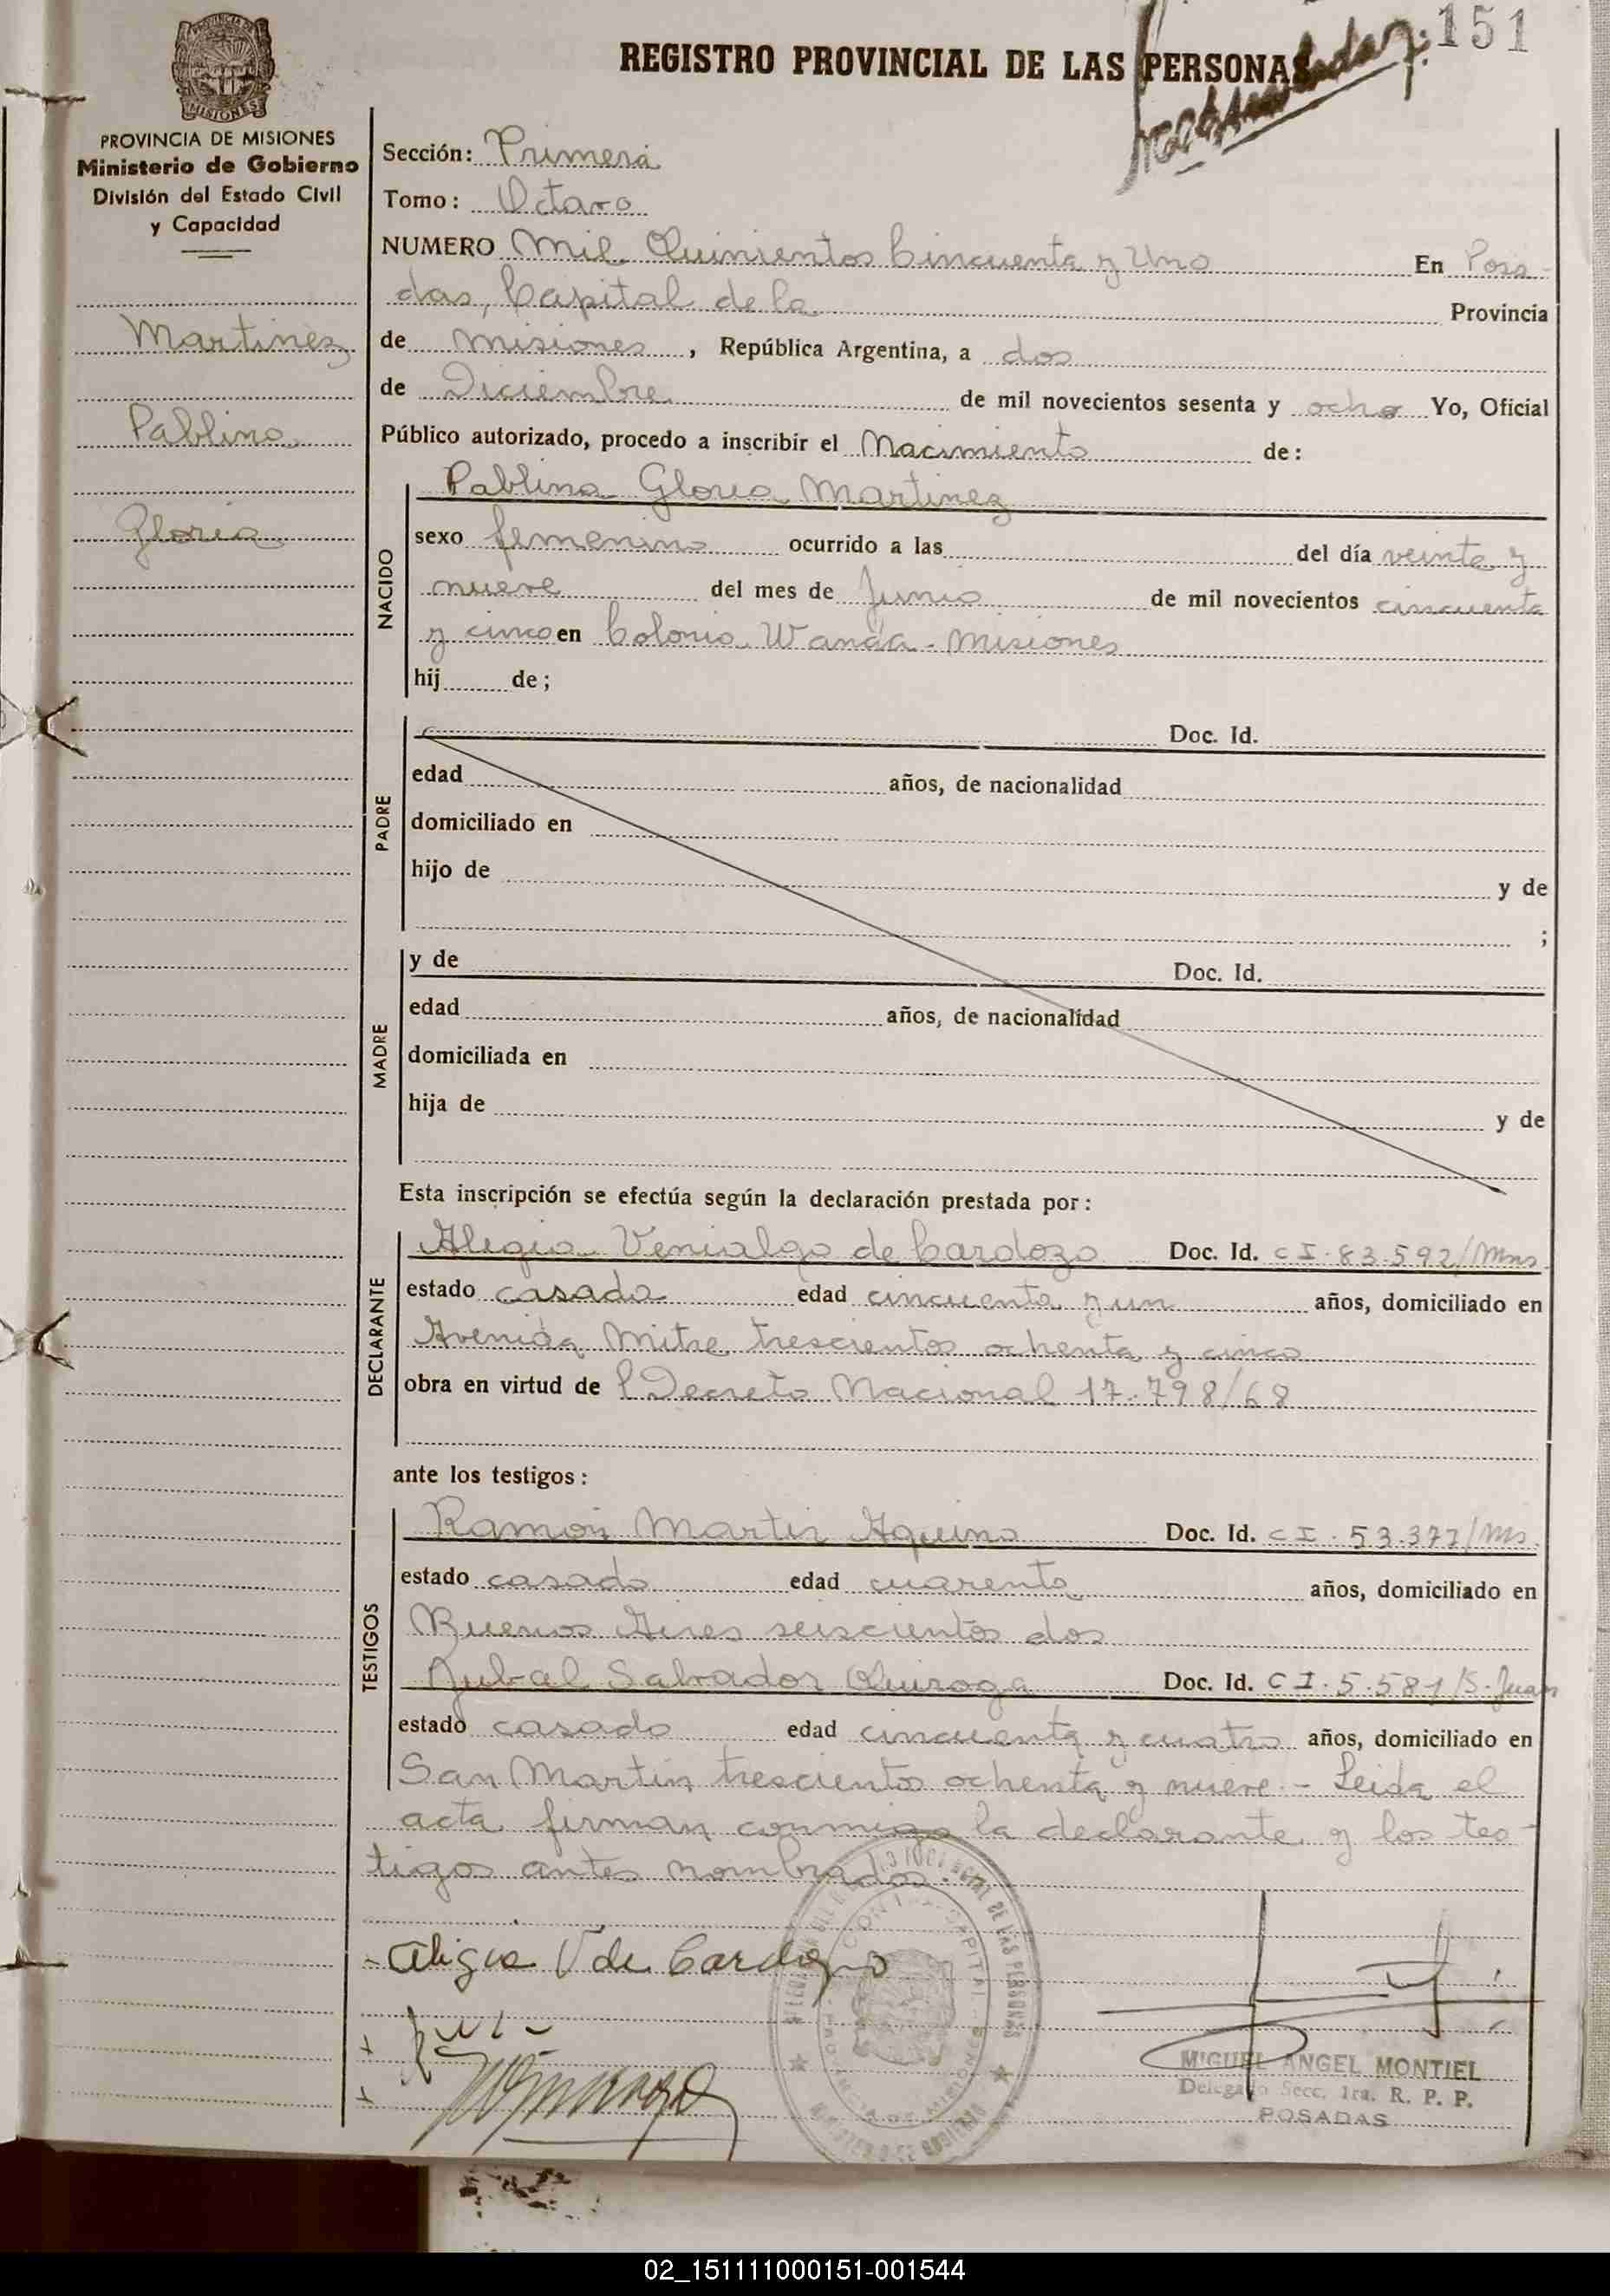 151
REGISTRO PROVINCIAL DE LAS PERSONAS
PROVINCIA DE MISIONES
Ministerio de Gobierno
División del Estado Civil
y Capacidad
Martinez
Pablina
Gloria
Sección: Primera
Tomo: Octavo
NUMERO Mil Quinientos Cincuenta y Uno En Posa-
das, Capital de la Provincia
de Misiones, República Argentina, a dos
de Diciembre de mil novecientos sesenta y ocho Yo, Oficial
Público autorizado, procedo a inscribir el Nacimiento de:
NACIDO
Pablina Gloria Martinez
sexo femenino ocurrido a las del día veinte y
nueve del mes de Junio de mil novecientos cincuenta
y cinco en Colonia Wanda - Misiones
hij de;
PADRE
Doc. Id.
edad años, de nacionalidad
domiciliado en
hijo de y de
;
MADRE
y de Doc. Id.
edad años, de nacionalidad
domiciliada en
hija de y de
Esta inscripción se efectúa según la declaración prestada por:
DECLARANTE
Aligia Venialgo de Cardozo Doc. Id. C I. 83.592/Mns
estado casada edad cincuenta y un años, domiciliado en
Avenida Mitre trescientos ochenta y cinco
obra en virtud de l Decreto Nacional 17.798/68
ante los testigos:
TESTIGOS
Ramón Martin Aquino Doc. Id. C I. 53.377/Ms.
estado casado edad cuarenta años, domiciliado en
Buenos Aires seiscientos dos
Jubal Salvador Quiroga Doc. Id. C I. 5.581/S. Juan
estado casado edad cincuenta y cuatro años, domiciliado en
San Martin trescientos ochenta y nueve - Leida el
acta firman conmigo la declarante y los tes-
tigos antes nombrados.
Aligia V de Cardozo
MIGUEL ANGEL MONTIEL
Delegado Secc. 1ra. R. P. P.
POSADAS
02_151111000151-001544